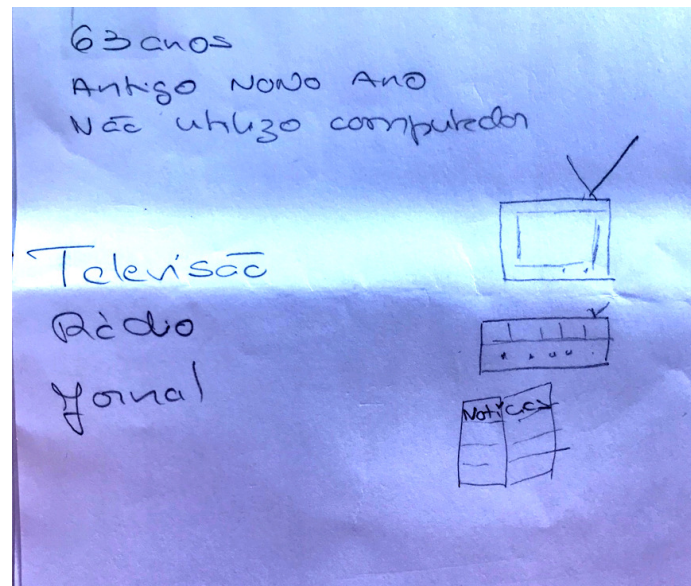 63 anos
Antigo Nono Ano
Não utilizo computador
Televisão
Rádio
Jornal
Notícias